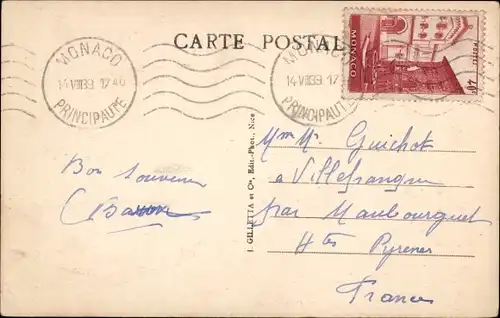 CARTE POSTALE
MONACO
14 VIII 39 17 40
PRINCIPAUTE
MONACO
14 VIII 39 17
PRINCIPAUTE
MONACO
POSTES
40c
Bon souvenir
J. GILLETTA et Cie, Edit.-Phot., Nice
Guichot
à Villefranque
par Maubourguet
Htes Pyrénées
France